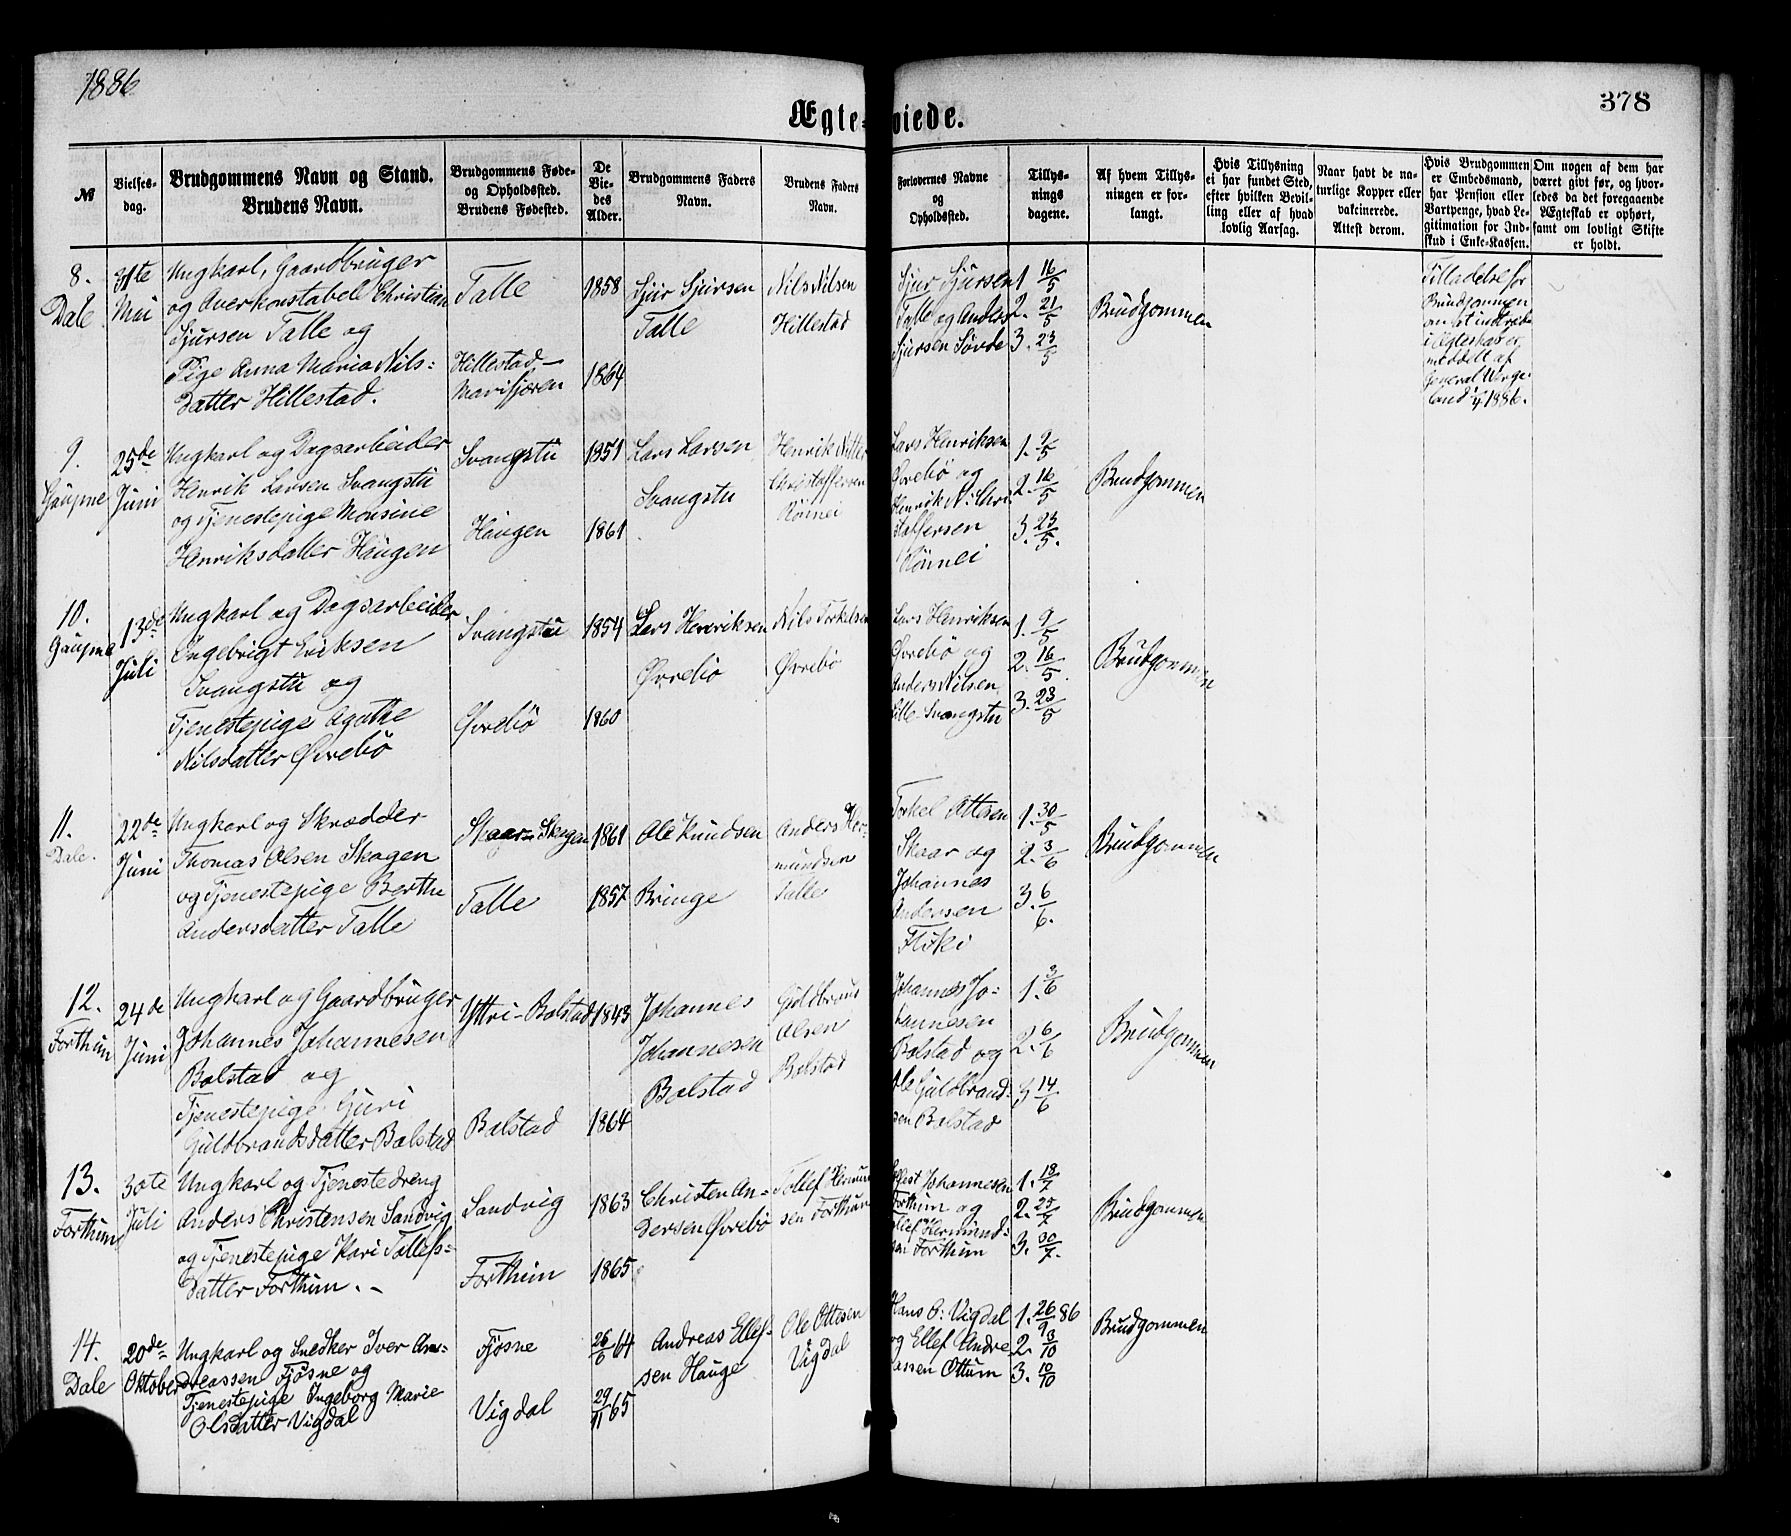 1886
378
Ægte-viede.
№
Vielses-
dag.
Brudgommens Navn og Stand.
Brudens Navn.
Brudgommens Føde-
og Opholdssted.
Brudens Fødested.
De
Vie-
des
Alder.
Brudgommens Faders
Navn.
Brudens Faders
Navn.
Forlovernes Navne
og
Opholdssted.
Tillys-
nings
dagene.
Af hvem Tillys-
ningen er for-
langt.
Hvis Tillysning
ei har fundet Sted,
efter hvilken Bevil-
ling eller af hvad
lovlig Aarsag.
Naar havt de na-
turlige Kopper eller
vakcinerede.
Attest derom.
Hvis Brudgommen
er Embedsmand,
har Pension eller
Vartpenge, hvad Le-
gitimation for Ind-
skud i Enke-Kassen.
Om nogen af dem har
været givt før, og hvor-
ledes da det foregaaende
Ægteskab er ophørt,
samt om lovligt Skifte
er holdt.
8.
Dale
31te
Mai
Ungkarl, Gaardbruger
og Overkonstabel Christian
Sjursen Talle og
Pige Anna Maria Nils-
datter Hillestad.
Talle
Hillestad-
Marifjæren
1858
1864
Sjur Sjursen
Talle
Nils Nilsen
Hillestad
Sjur Sjursen
Talle og Anders
Sjursen Søvde
1. 16/5
2. 21/5
3. 23/5
Brudgommen
Tilladelse for
Brudgommen
i Ægteskab er
meddelt af
General Werge-
land 1886.
9.
Gaupne
25de
Juni
Ungkarl og Dagsarbeider
Henrik Larsen Svangstu
og Tjenestepige Monsine
Henriksdatter Haugen
Svangstu
Haugen
1851
1861
Lars Larsen
Svangstu
Henrik Nitter
Christoffersen
Rønnei
Lars Henriksen
Øvrebø og
Henrik N. Chri-
stoffersen
Rønnei
1. 9/5
2. 16/5
3. 23/5.
Brudgommen
10.
Gaupne
13de
Juli
Ungkarl og Dagsarbeider
Ingebrigt Eriksen
Svangstu og
Tjenestepige Agathe
Nilsdatter Øvrebø
Svangstu
Øvrebö
1854
1860
Lars Henriksen
Øvrebø
Nils Torkelsen
Øvrebø
Lars Henriksen
Øvrebø og
Anders Nilsen
Lille-Svangstu
1. 9/5
2. 16/5
3. 23/5
Brudgommen
11.
Dale.
22de
Juni
Ungkarl og Skrædder
Thomas Olsen Skogen
og Tjenestepige Berthe
Andersdatter Talle
Skaar-Skogen
Talle
1861
1857
Ole Knudsen
Bringe
Anders Her-
mundsen
Talle
Torkel Ottesen
Skaar og
Johannes
Andersen
Fløki
1. 30/5
2. 3/6
3. 6/6.
Brudgommen
12.
Forthun
24de
Juni
Ungkarl og Gaardbruger
Johannes Johannesen
Bolstad og
Tjenestepige Guri
Guldbrandsdatter Bolstad
Yttri-Bolstad
Bolstad
1843
1864
Johannes
Johannesen
Bolstad
Guldbrand
Olsen
Bolstad
Johannes Jo-
hannesen
Bolstad og
Ole Guldbrand-
sen Bolstad
1. 3/6
2. 6/6
3. 14/6
Brudgommen
13.
Forthun
30te
Juli
Ungkarl og Tjenestedreng
Anders Christensen Sandvig
og Tjenestepige Kari Tollefs-
datter Forthun.-
Sandvig
Forthun
1863
1865
Christen An-
dersen Øvrebø
Tollef Hermund
sen Forthun
Johannesen
Forthun og
Tollef Hermund-
sen Forthun
1. 18/7
2. 25/7
3. 30/7.
Brudgommen
14.
Dale
20de
Oktober
Ungkarl og Snedker Iver An-
dreassen Fjøsne og
Tjenestepige Ingeborg Marie
Olsdatter Vigdal
Fjøsne
Vigdal
26/6 64
29/11 65
Andreas Ellef-
sen Hauge
Ole Ottesen
Vigdal
Hans O: Vigdal
og Ellef Andre-
assen Ottum
1. 26/9 86
2. 3/10
3. 10/10
Brudgommen